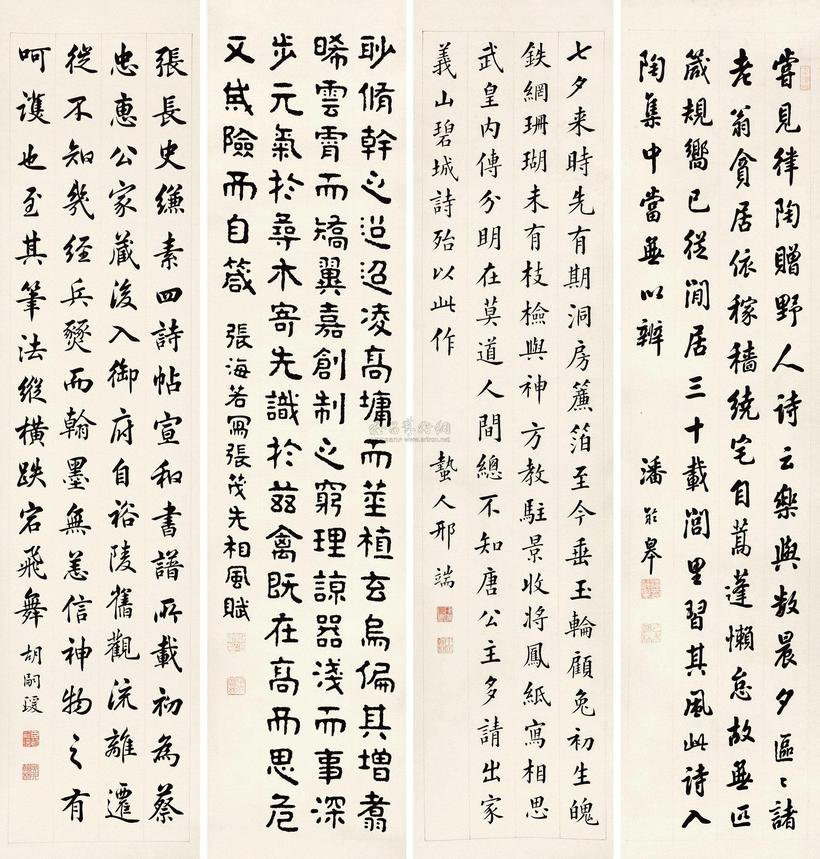 嘗見律陶贈野人詩云樂與數晨夕區〻諸
老翁貪居依稼穡繞宅自蒿蓬懶怠故無匹
箴規嚮已從閒居三十載閭里習其風此詩入
陶集中當無以辨
潘齡皋
七夕来時先有期洞房簾箔至今垂玉輪顧兔初生魄
鉄網珊瑚未有枝檢與神方教駐景收將鳳紙寫相思
武皇內傳分明在莫道人間總不知唐公主多請出家
義山碧城詩殆以此作
蟄人邢端
耿脩幹之迢迢凌高墉而莖植玄烏偏其增翥
晞雲霄而矯翼嘉創制之窮理諒器淺而事深
步元氣於尋木寄先識於茲禽既在高而思危
又戒險而自箴
張海若寫張茂先相風賦
張長史縑素四詩帖宣和書譜所載初為蔡
忠惠公家藏後入御府自裕陵舊觀流離遷
徙不知幾経兵燹而翰墨無恙信神物之有
呵護也至其筆法縱横跌宕飛舞
胡嗣瑗
www.artron.net